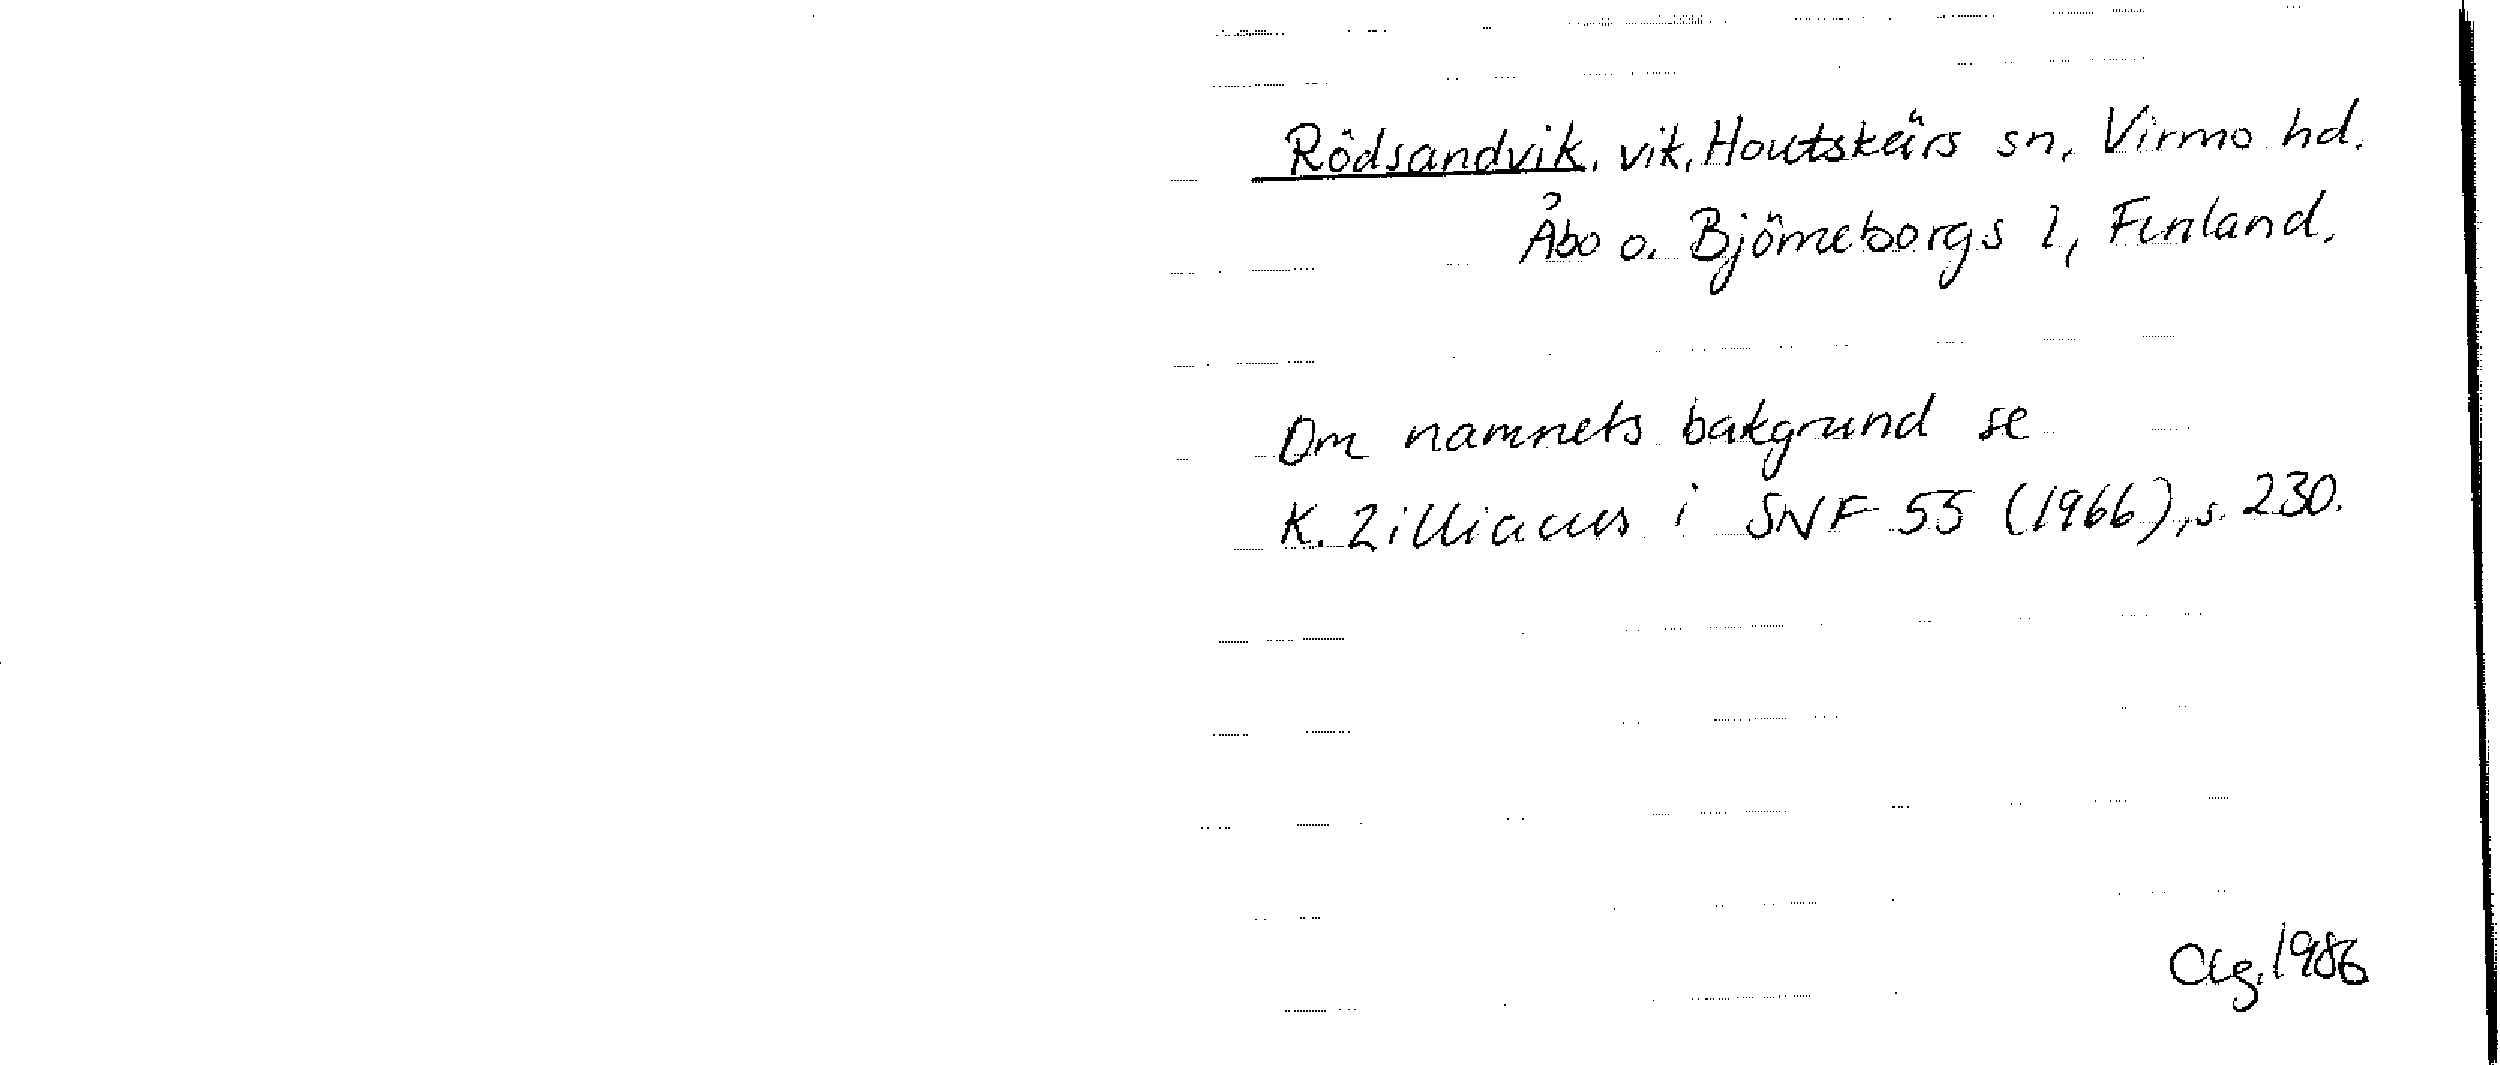 Rödsandvik, vik, Houtskärs sn, Virmo hd.
Åbo o. Björneborgs l, Finland.
Om namnets bakgrund se
K. Zilliacus i SNF 55 (1966), s. 230.
1986